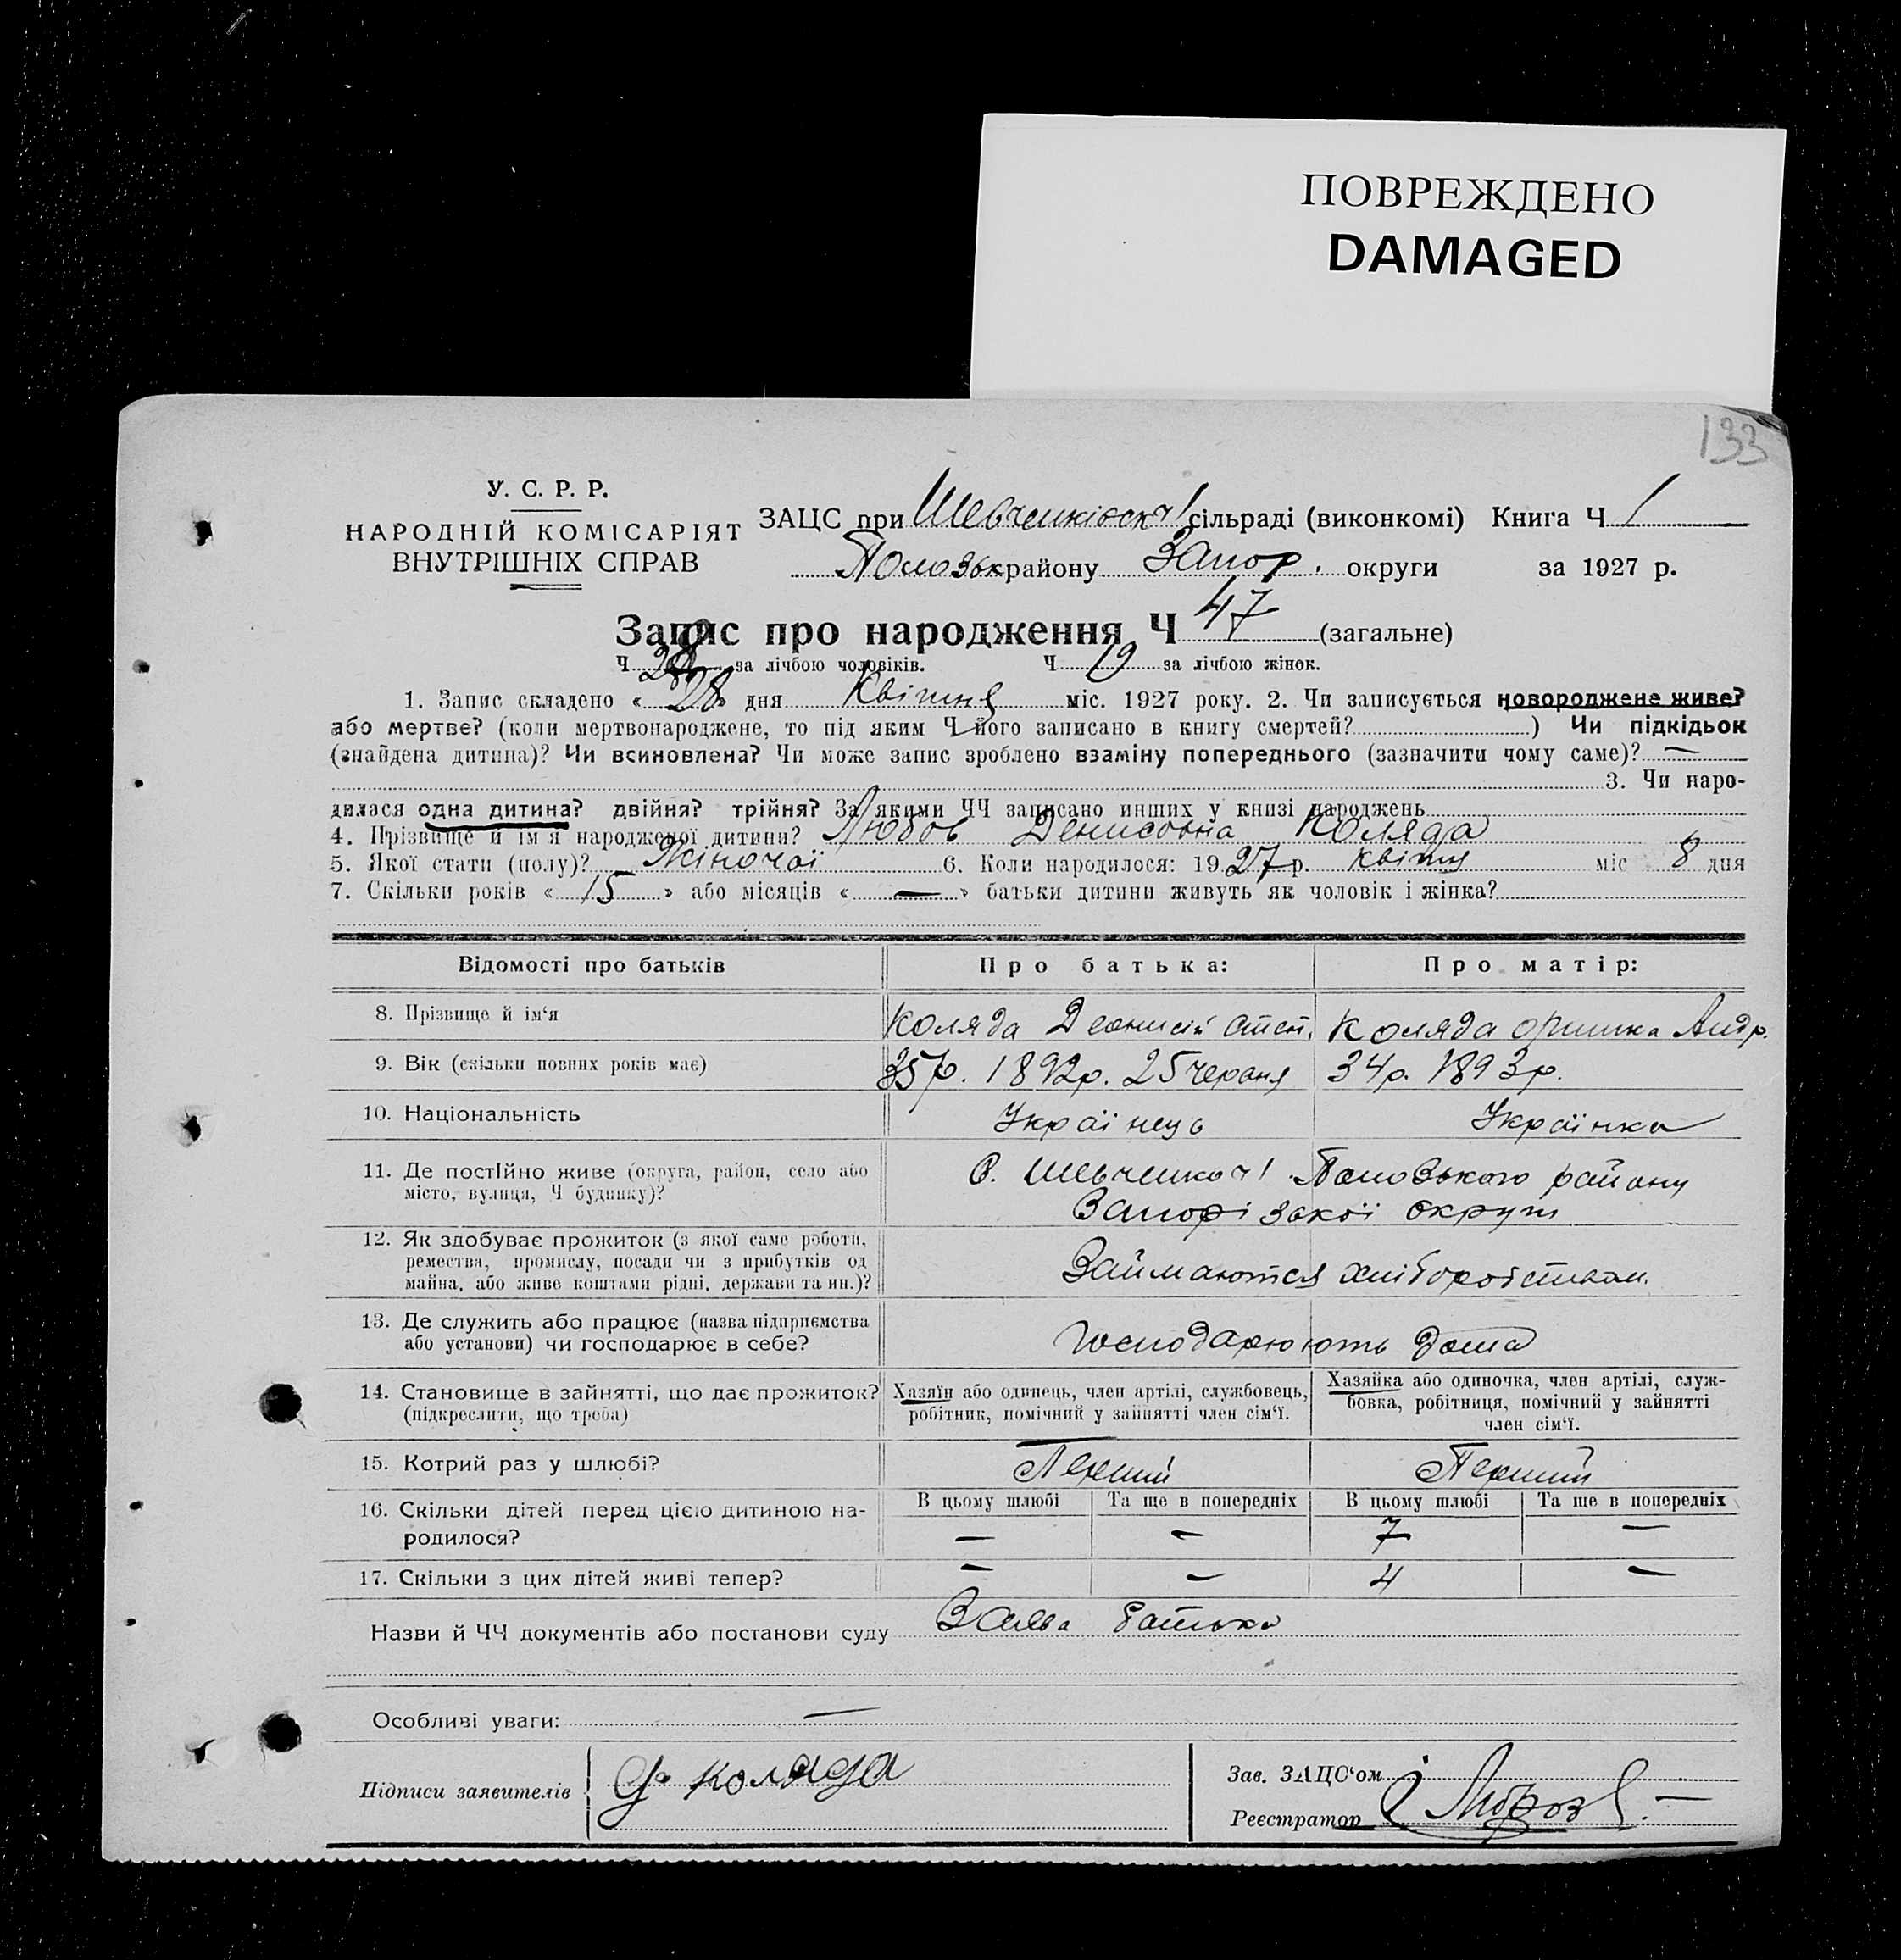 ПОВРЕЖДЕНО
DAMAGED
133
У. С. Р. Р.
НАРОДНІЙ КОМІСАРІЯТ
ВНУТРІШНІХ СПРАВ
ЗАЦС при сільраді (виконкомі) Книга Ч 1
району Запор. округи за 1927 р.
Запис про народження Ч 47 (загальне)
Ч за лічбою чоловіків. Ч 19 за лічбою жінок.
1. Запис складено « 28 » дня Квітня міс. 1927 року. 2. Чи записується новороджене живе?
або мертве? (коли мертвонароджене, то під яким Ч його записано в книгу смертей? ) Чи підкідьок
(знайдена дитина)? Чи всиновлена? Чи може запис зроблено взаміну попереднього (зазначити чому саме)? —
3. Чи наро-
дилася одна дитина? двійня? трійня? За якими ЧЧ записано инших у книзі народжень
4. Прізвище й ім'я народженої дитини? Любов Денисовна Коляда
5. Якої стати (полу)? Жіночої 6. Коли народилося: 1927 р. квітня міс 8 дня
7. Скільки років « 15 » або місяців « — » батьки дитини живуть як чоловік і жінка?
Відомості про батьків Про батька: Про матір:
8. Прізвище й ім‘я Коляда Деонисій Степ. Коляда Оришка Андр.
9. Вік (скільки повних років має) 35 р. 1892р. 25 червня 34р. 1893р.
10. Національність Українець Українка
11. Де постійно живе (округа, район, село або
місто, вулиця, Ч будинку)?
С. Шевченко ч1 Пологського району
Запорізької округи
12. Як здобуває прожиток (з якої саме роботи,
ремества, промислу, посади чи з прибутків од
майна, або живе коштами рідні, держави та ин.)?
Займаются хліборобством.
13. Де служить або працює (назва підприємства
або установи) чи господарює в себе?
Господарюють дома
14. Становище в зайнятті, що дає прожиток?
(підкреслити, що треба)
Хазяїн або одинець, член артілі, службовець,
робітник, помічний у зайнятті член сім‘ї.
Хазяйка або одиночка, член артілі, служ-
бовка, робітниця, помічний у зайнятті
член сім‘ї.
15. Котрий раз у шлюбі? Перший Перший
16. Скільки дітей перед цією дитиною на-
родилося?
В цьому шлюбі Та ще в попередніх В цьому шлюбі Та ще в попередніх
— — 7 —
17. Скільки з цих дітей живі тепер? — — 4 —
Назви й ЧЧ документів або постанови суду Заява батька
Особливі уваги: —
Підписи заявителів Д. Коляда
Зав. ЗАЦС‘ом
Реєстратор